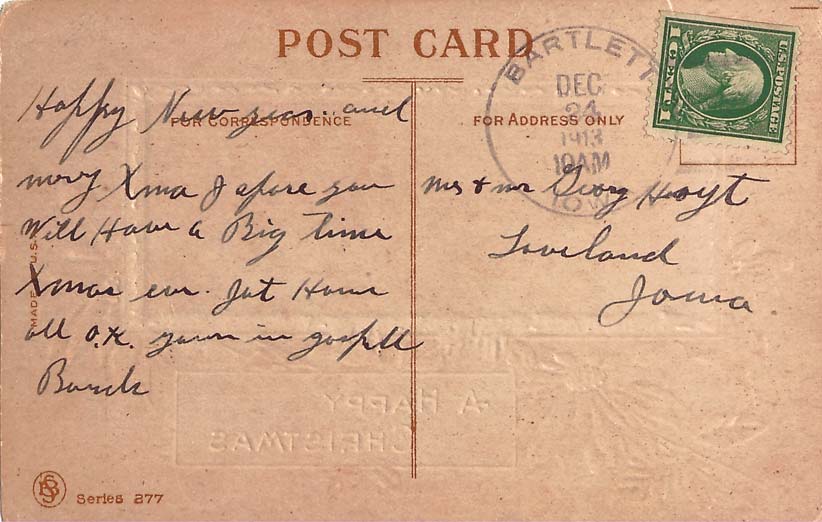 POST CARD
BARTLETT
DEC
24
1913
10AM
IOWA
1 CENT 1
U.S. POSTAGE
FOR CORRESPONDENCE
FOR ADDRESS ONLY
Happy New year and
mery Xma I spose you
Will Have a Big time
Xmas eve. Jat Home
all O.K. yours in
Mrs & mr Georg Hoyt
Loveland
Iowa
MADE IN U.S.A.
A HAPPY
CHRISTMAS
Series 277